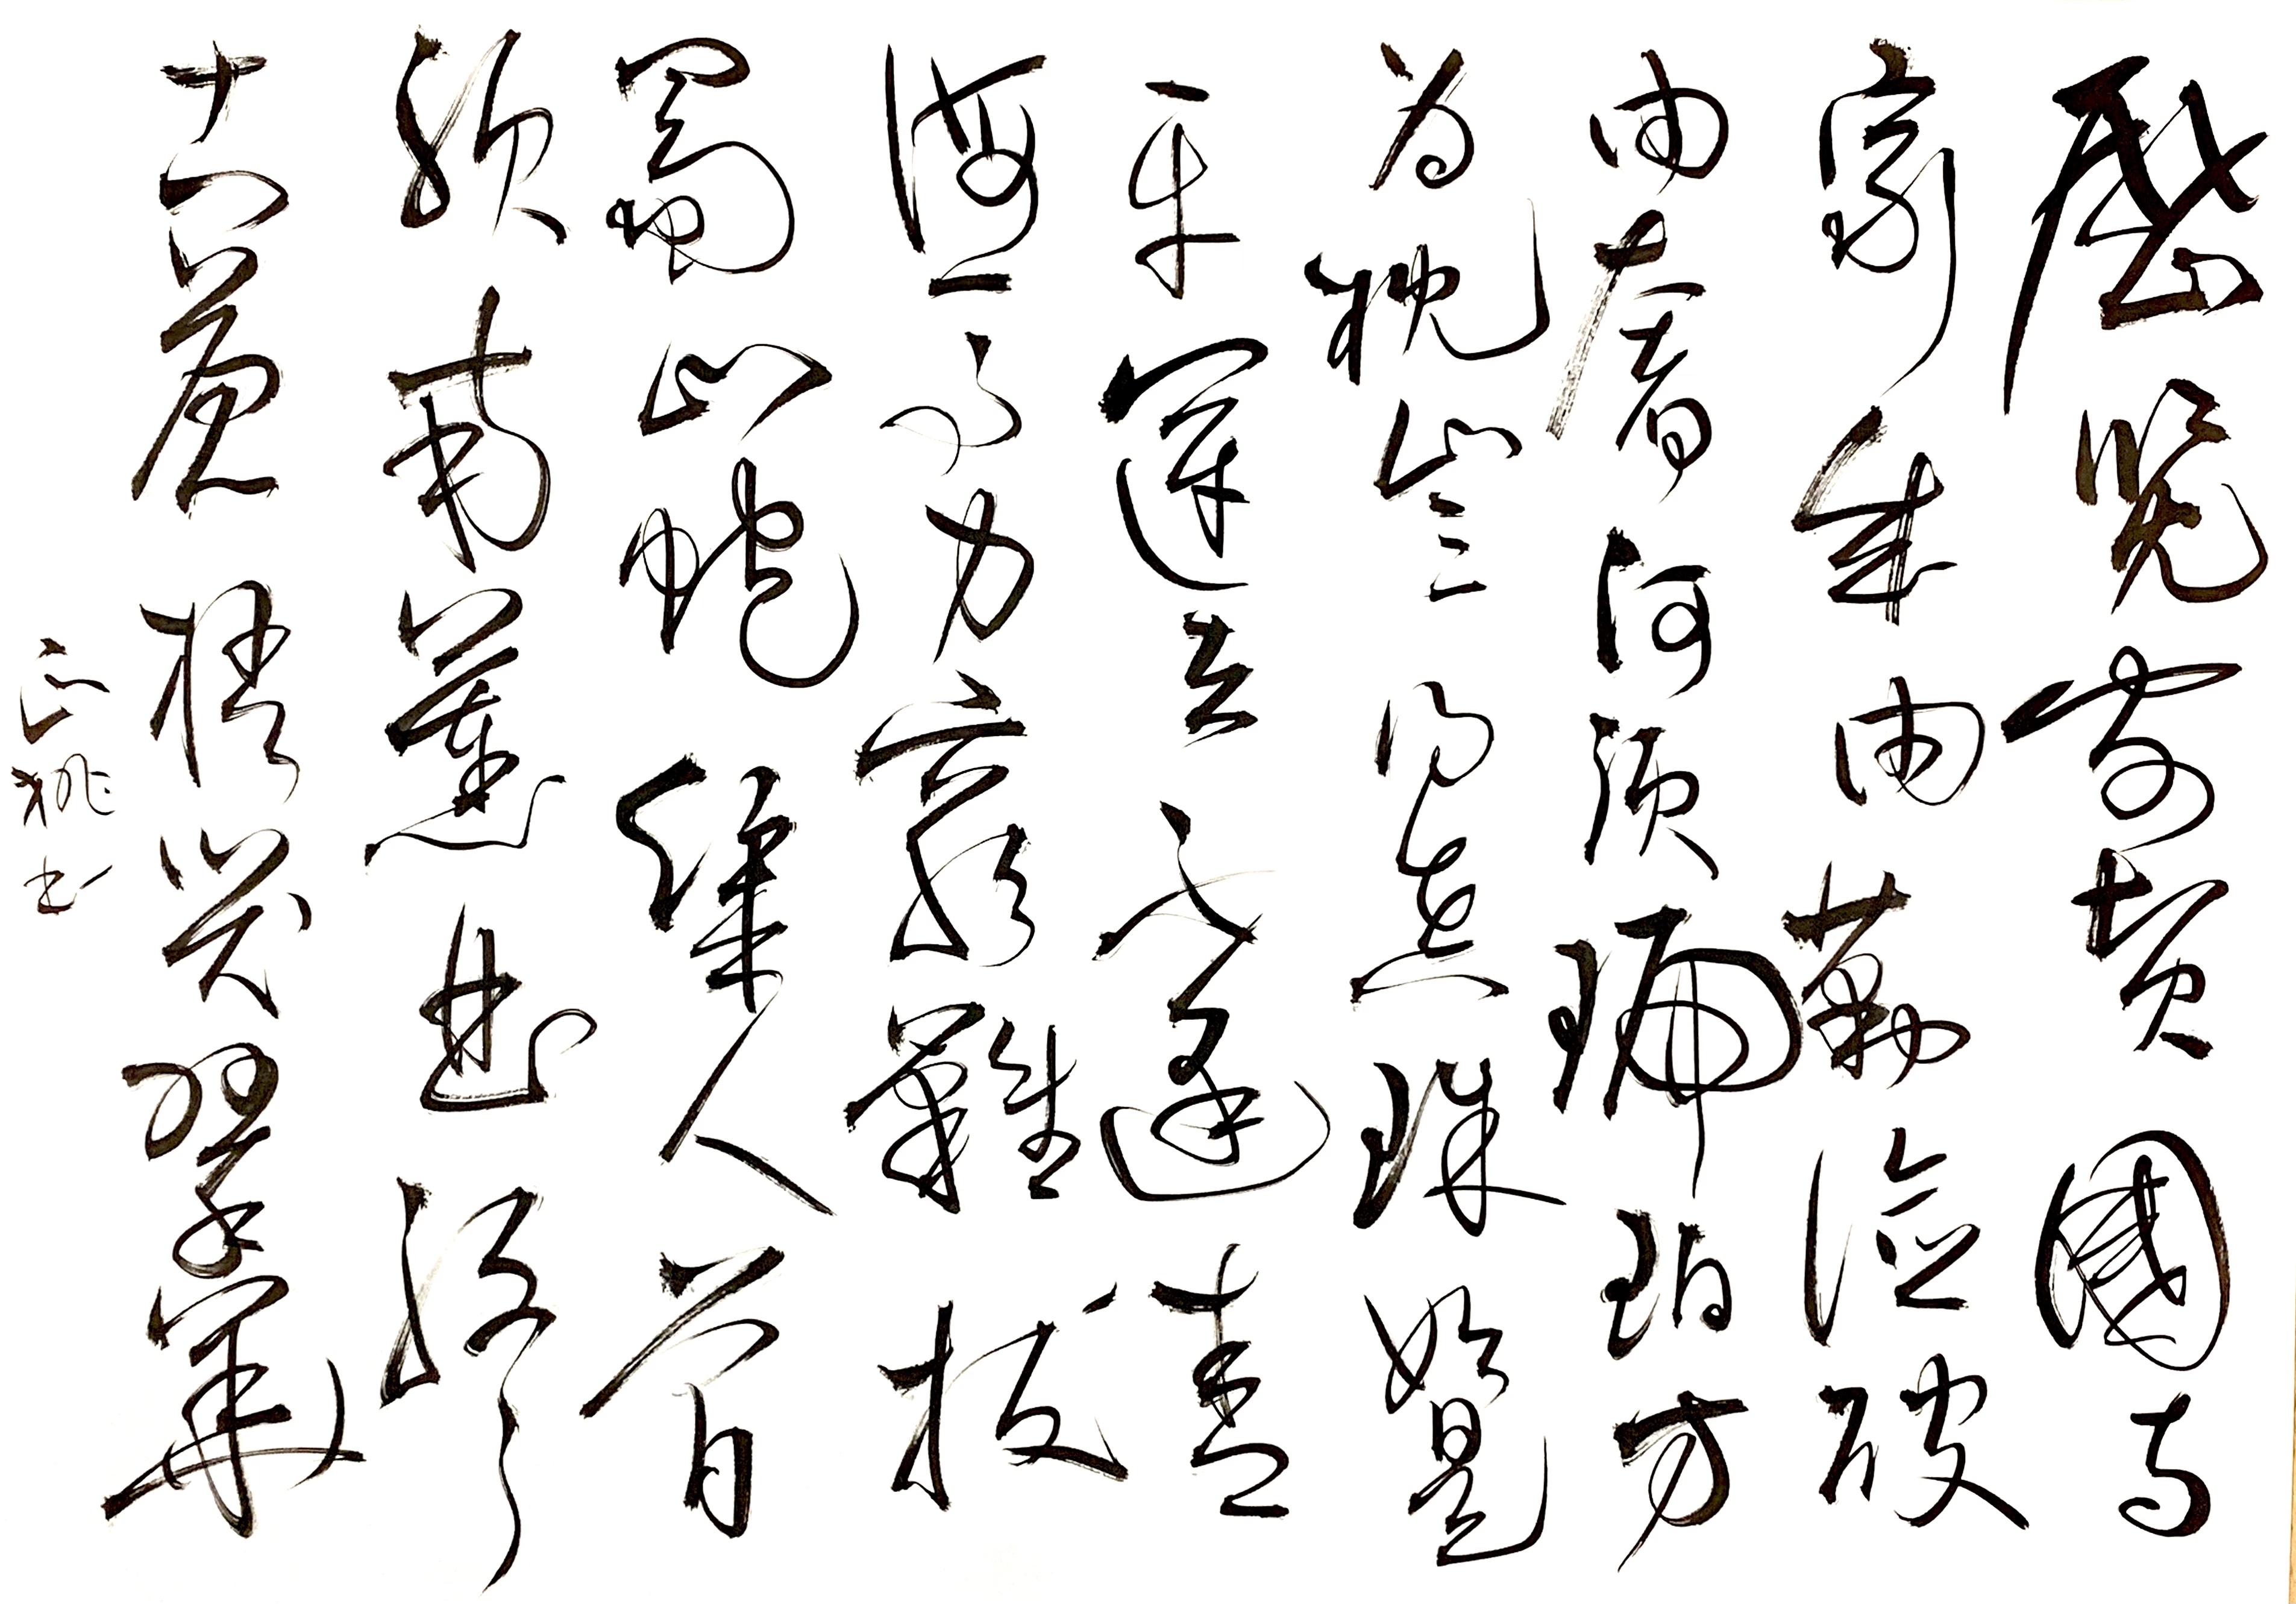 歷覽前賢國与
家成由勤儉破
由奢何須琥珀方
為枕豈得真珠始是
車運去不逢青
海馬力窮難拔
蜀山蛇幾人曾
預南薰曲終
古蒼梧哭翠華
正桃书